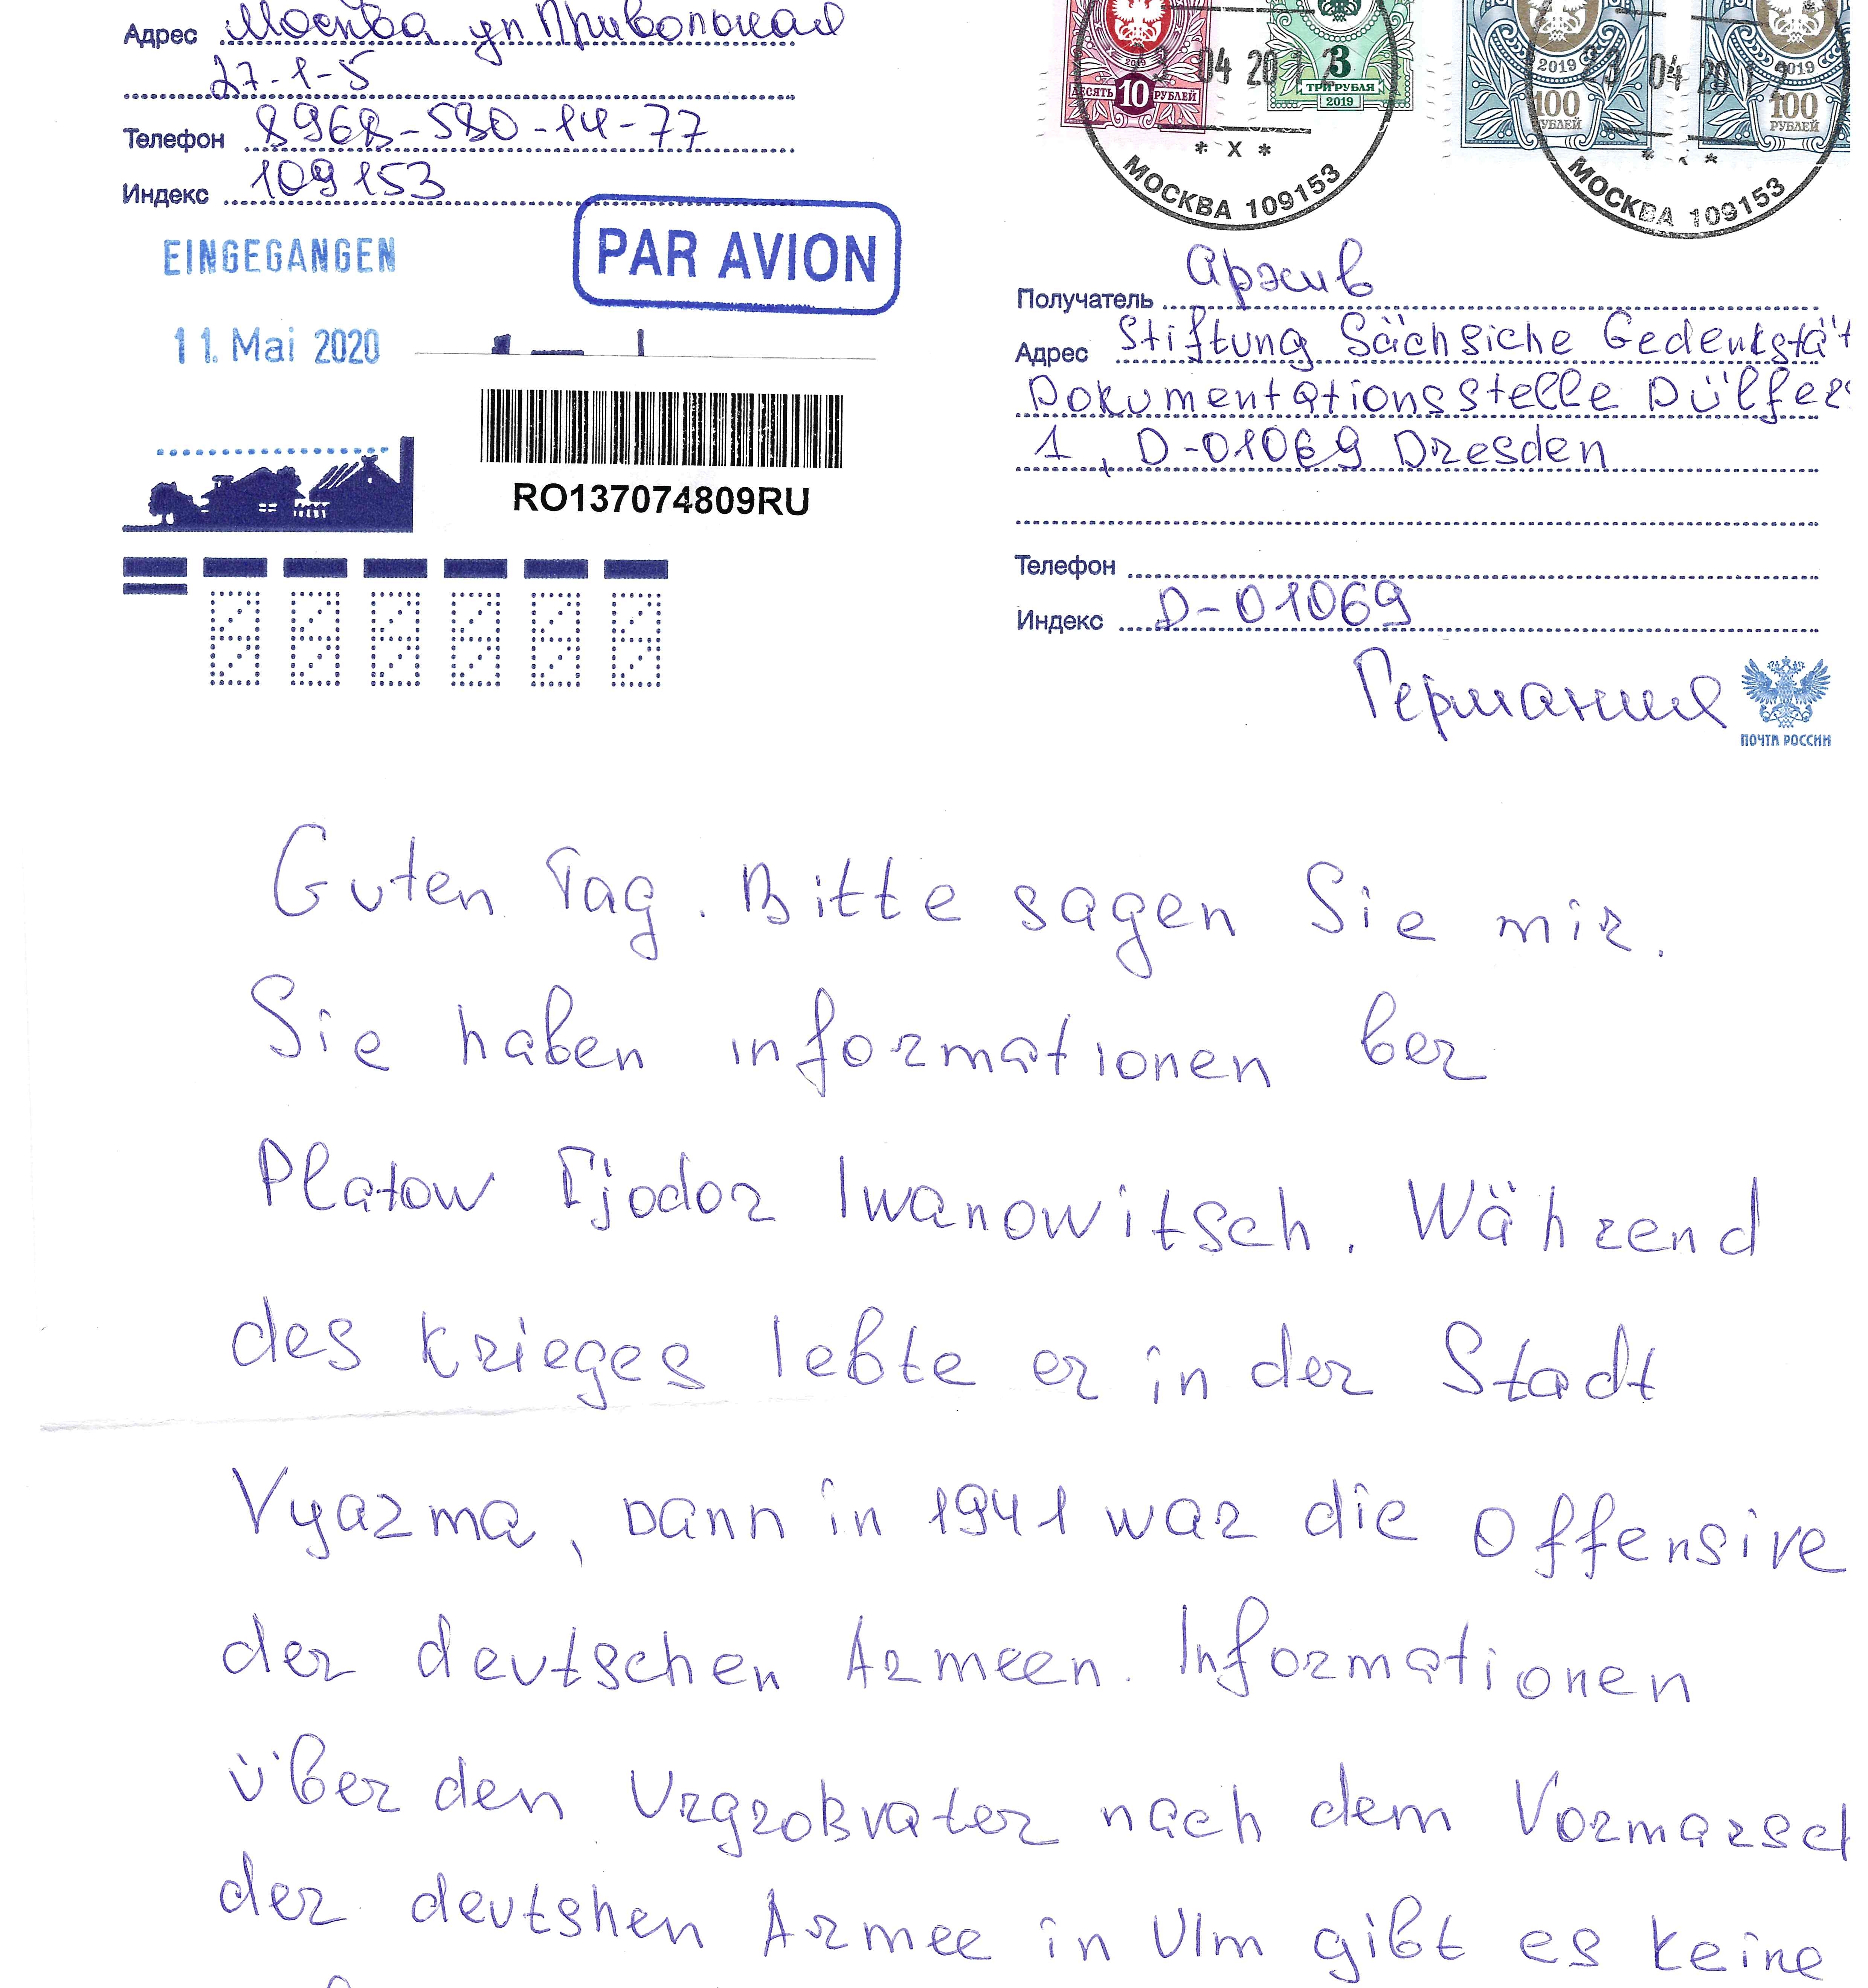 Адрес Москва ул Привольная
27-1-5
Телефон 8968-580-14-77
Индекс 109153
2019
ДЕСЯТЬ 10 РУБЛЕЙ
3
ТРИ РУБЛЯ
2019
04 2012
* X *
МОСКВА 109153
2019
100
РУБЛЕЙ
2019
100
РУБЛЕЙ
23 04 201
МОСКВА 109153
EINGEGANGEN
11. Mai 2020
PAR AVION
RO137074809RU
Получатель Архив
Адрес Stiftung Sächsiche Gedenkstät
Dokumentationsstelle Dülfers
1, D-01069 Dresden
Телефон
Индекс D-01069
Германия
ПОЧТА РОССИИ
Guten Tag. Bitte sagen Sie mir.
Sie haben informationen ber
Platow Fjodor Iwanowitsch. Während
des krieges lebte er in der Stadt
Vyazma, Dann in 1941 war die Offensive
der deutschen Armeen. Informationen
über den Urgroßvater nach dem Vormarsch
der deutshen Armee in Ulm gibt es keine